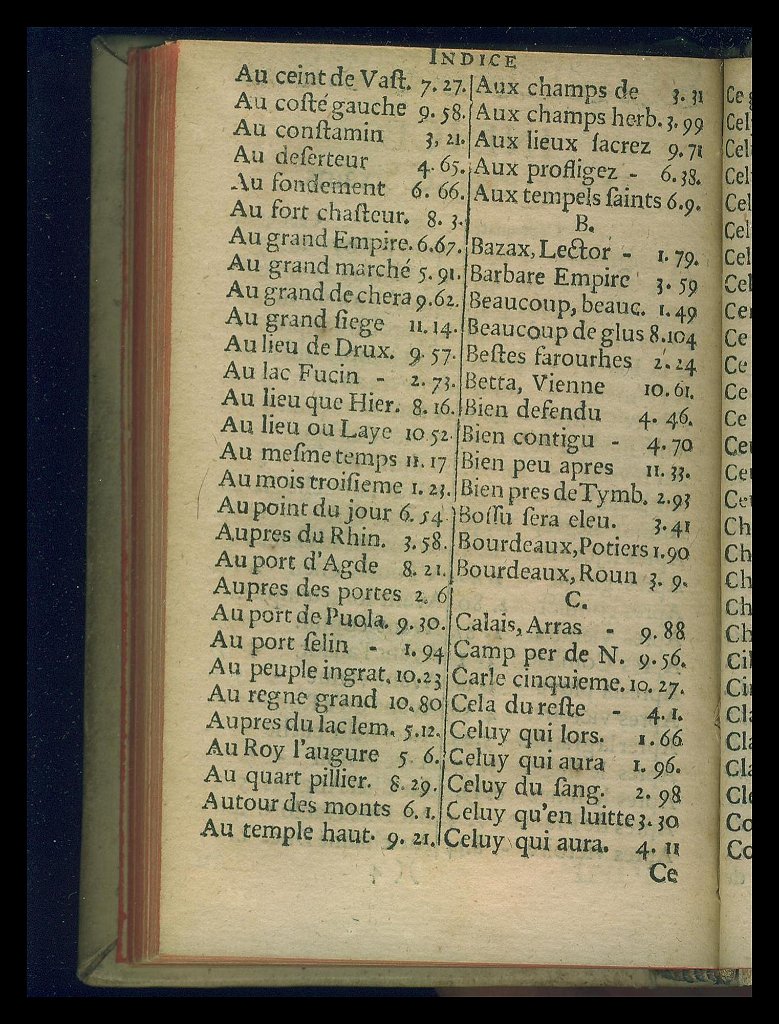 INDICE
Au ceint de Vaſt. 7. 27.
Au coſté gauche 9. 58.
Au conſtamin 3, 21.
Au deſerteur 4. 65.
Au fondement 6. 66.
Au fort chaſteur. 8. 3.
Au grand Empire. 6.67.
Au grand marché 5. 91.
Au grand de chera 9.62.
Au grand ſiege 11. 14.
Au lieu de Drux. 9. 57.
Au lac Fucin - 2. 73.
Au lieu que Hier. 8. 16.
Au lieu ou Laye 10 52.
Au meſme temps 11. 17
Au mois troiſieme 1. 23.
Au point du jour 6. 54
Aupres du Rhin. 3. 58.
Au port d'Agde 8. 21.
Aupres des portes 2. 6
Au port de Puola. 9. 30.
Au port ſelin - 1. 94
Au peuple ingrat. 10.23
Au regne grand 10. 80
Aupres du lac lem. 5.12.
Au Roy l'augure 5 6.
Au quart pillier. 8. 29.
Autour des monts 6. 1.
Au temple haut. 9. 21.
Aux champs de 3. 31
Aux champs herb. 3. 99
Aux lieux ſacrez 9. 71
Aux profligez - 6. 38.
Aux tempels ſaints 6.9.
B.
Bazax, Lector - 1. 79.
Barbare Empire 3. 59
Beaucoup, beauc. 1. 49
Beaucoup de glus 8.104
Beſtes farourhes 2. 24
Betta, Vienne 10. 61.
Bien defendu 4. 46.
Bien contigu - 4. 70
Bien peu apres 11. 33.
Bien pres de Tymb. 2.93
Boſſu ſera eleu. 3. 41
Bourdeaux, Potiers 1.90
Bourdeaux, Roun 3. 9.
C.
Calais, Arras - 9. 88
Camp per de N. 9. 56.
Carle cinquieme. 10. 27.
Cela du reſte - 4. 1.
Celuy qui lors. 1. 66
Celuy qui aura 1. 96.
Celuy du ſang. 2. 98
Celuy qu'en luitte 3. 30
Celuy qui aura. 4. 11
Ce